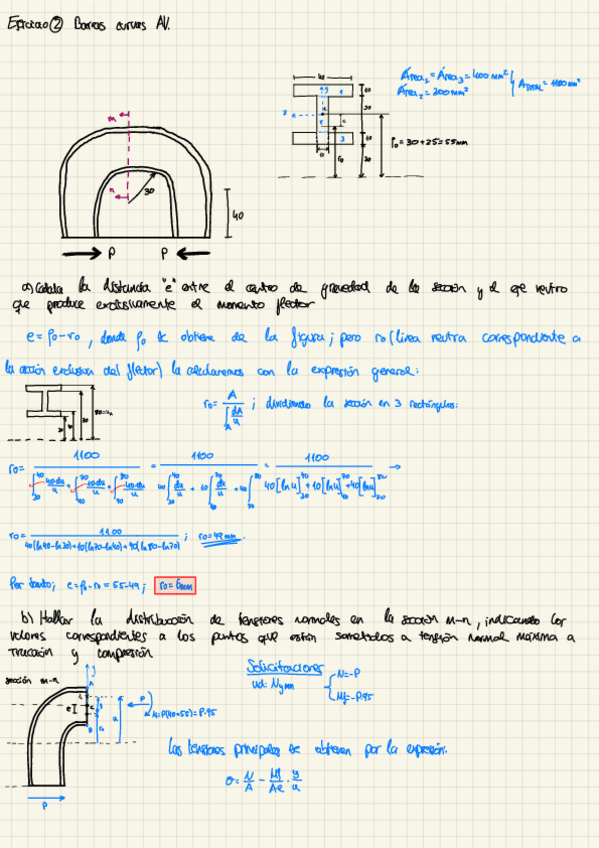 Ejercicio ② Barras curvas AV.
Área₁ = Área₃ = 400 mm²
Área₂ = 300 mm²
A TOTAL = 1100 mm²
ρ₀ = 30 + 25 = 55 mm
m
n
30
40
P P
a) Calcula la distancia "e" entre el centro de gravedad de la sección y el eje neutro
que produce exclusivamente el momento flector
e = ρ₀ - r₀, donde ρ₀ se obtiene de la figura; pero r₀ (línea neutra correspondiente a
la acción exclusiva del flector) la calcularemos con la expresión general:
r₀ = A / ∫A dA/u ; dividiendo la sección en 3 rectángulos:
r₀ = 1100 / (∫ 40du/u + ∫ 10du/u + ∫ 40du/u) = 1100 / (40∫ du/u + 10∫ du/u + 40∫ du/u) = 1100 / (40[ln u] + 10[ln u] + 40[ln u]) →
r₀ = 1100 / (40(ln40-ln30)+10(ln70-ln40)+40(ln80-ln70)) ; r₀ = 49 mm.
Por tanto; e = ρ₀ - r₀ = 55-49 ; r₀ = 6mm
b) Hallar la distribución de tensiones normales en la sección m-n, indicando los
valores correspondientes a los puntos que están sometidos a tensión normal máxima a
tracción y compresión
sección m-n
Solicitaciones
ud: N y mm
N = -P
Mf = -P·95
P
M = P(40+55) = P·95
P
Las tensiones principales se obtienen por la expresión:
σ = N/A - Mf/Ae · y/u